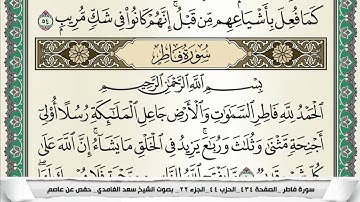 كَمَا فُعِلَ بِأَشْيَاعِهِم مِّن قَبْلُ ۚ إِنَّهُمْ كَانُوا۟ فِى شَكٍّ مُّرِيبٍۭ ٥٤
سُورَةُ فَاطِرٍ
بِسْمِ ٱللَّهِ ٱلرَّحْمَٰنِ ٱلرَّحِيمِ
ٱلْحَمْدُ لِلَّهِ فَاطِرِ ٱلسَّمَٰوَٰتِ وَٱلْأَرْضِ جَاعِلِ ٱلْمَلَٰٓئِكَةِ رُسُلًا أُو۟لِىٓ
أَجْنِحَةٍ مَّثْنَىٰ وَثُلَٰثَ وَرُبَٰعَ ۚ يَزِيدُ فِى ٱلْخَلْقِ مَا يَشَآءُ ۚ إِنَّ ٱللَّهَ عَلَىٰ
سورة فاطر _ الصفحة ٤٣٤_الحزب ٤٤_الجزء ٢٢_ بصوت الشيخ سعد الغامدي_ حفص عن عاصم